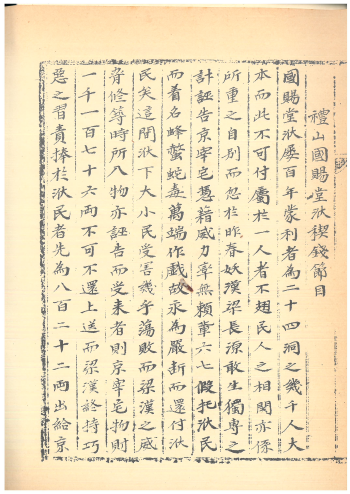 禮山國賜堂洑稧錢節目
國賜堂洑屢百年蒙利者為二十四洞之幾千人大
本而此不可付屬於一人者不趐民人之相関亦係
所重之自別而忽於昨春妖漢梁長源敢生獨專之
計誣告京宰宅憑藉威力率無頼輩六七假托洑民
而着名蜂螫蛇毒萬端作戱故永為嚴斷而還付洑
民矣這間洑下大小民受害幾乎蕩敗而梁漢之威
脅修筭時所入物亦誣告而受来者則京宰宅物財
一千一百七十六両不可不還上送而梁漢終持巧
惡之習責捧於洑民者先為八百二十二両出給京